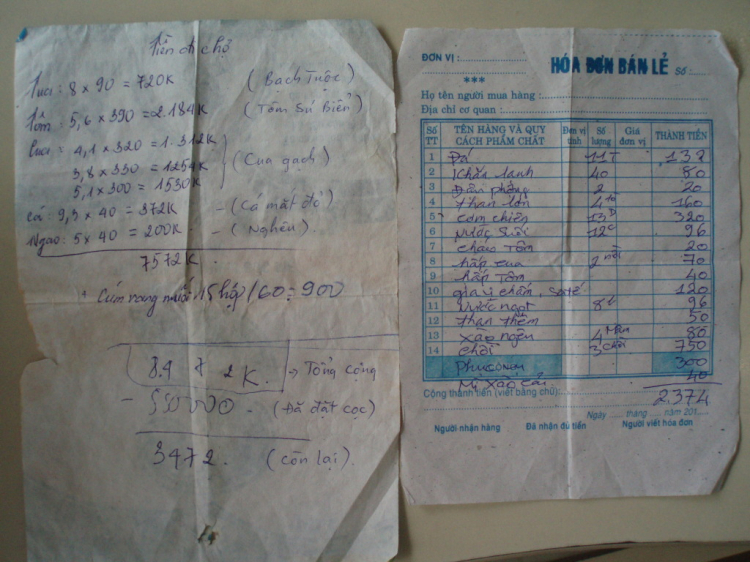 Tiền đi chợ
Mực: 8 x 90 = 720K (Bạch Tuộc)
Tôm: 5,6 x 390 = 2.184K (Tôm Sú Biển)
4,1 x 320 = 1.312K
3,8 x 330 = 1254K (Cua gạch)
5,1 x 300 = 1530K
cá: 9,3 x 40 = 372K - (Cá mắt đỏ)
Ngao: 5 x 40 = 200K - (Nghêu).
7572K.
+ Cơm rang muối 15 hộp / 60 = 900
8472K. → Tổng cộng
- (Đã đặt cọc)
3472. (còn lại).
ĐƠN VỊ :
HÓA ĐƠN BÁN LẺ Số :
***
Họ tên người mua hàng :
Địa chỉ cơ quan :
Số TT TÊN HÀNG VÀ QUY CÁCH PHẨM CHẤT Đơn vị tính Số lượng Giá đơn vị THÀNH TIỀN
1 Đá 11T 138
2 Khăn lạnh 40 80
3 Đậu phộng 2 20
4 Than lớn 4 160
5 cơm chiên 13D 320
6 Nước Suối 12c 96
7 cháo Tôm 20
8 hấp cua 2 nồi 70
9 hấp Tôm 40
10 gia vị chấm Saté 120
11 Nước ngọt 8 96
12 than thêm 50
13 xào nghêu 4 80
14 chòi 3 chòi 750
300
Mì xào cải 40
Cộng thành tiền (viết bằng chữ): 2.374
Ngày ..... tháng ..... năm 201.....
Người nhận hàng Đã nhận đủ tiền Người viết hóa đơn